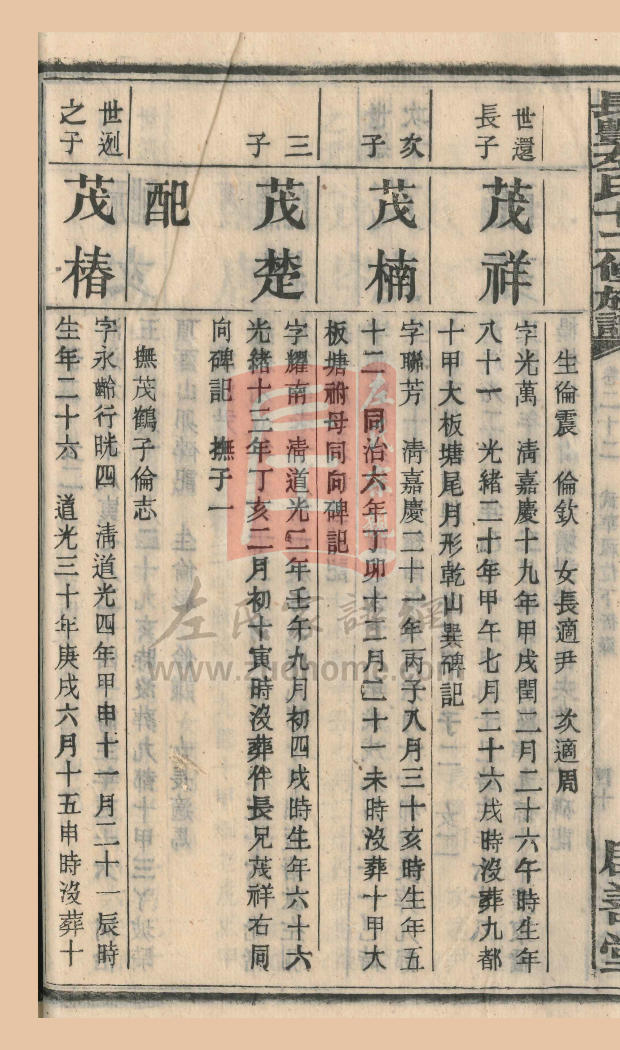 長豐左氏十二修族譜
卷二十二
四十
居善堂
生倫震 倫欽 女長適尹 次適周
世還
長子
茂祥
字光萬 清嘉慶十九年甲戌閏二月二十六午時生年
八十一 光緒二十年甲午七月二十六戌時沒葬九都
十甲大板塘尾月形乾山巽碑記
次次
子
茂楠
字聯芳 清嘉慶二十一年丙子八月三十亥時生年五
十二 同治六年丁卯十二月二十一未時沒葬十甲大
板塘祔母同向碑記
三
子
茂楚
字耀南 清道光二年壬午九月初四戌時生年六十六
光緒十三年丁亥二月初十寅時沒葬伴長兄茂祥右同
向碑記 撫子一
配
撫茂鶴子倫志
世迾
之子
茂椿
字永齡行晄四 清道光四年甲申十一月二十一辰時
生年二十六 道光三十年庚戌六月十五申時沒葬十
左氏家譜網
www.zuohome.com